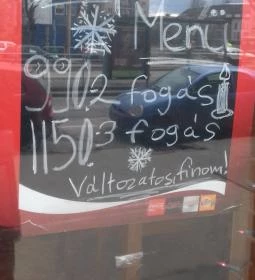 Menü
990.2 fogás!
1150.3 fogás
Változatos, finom!